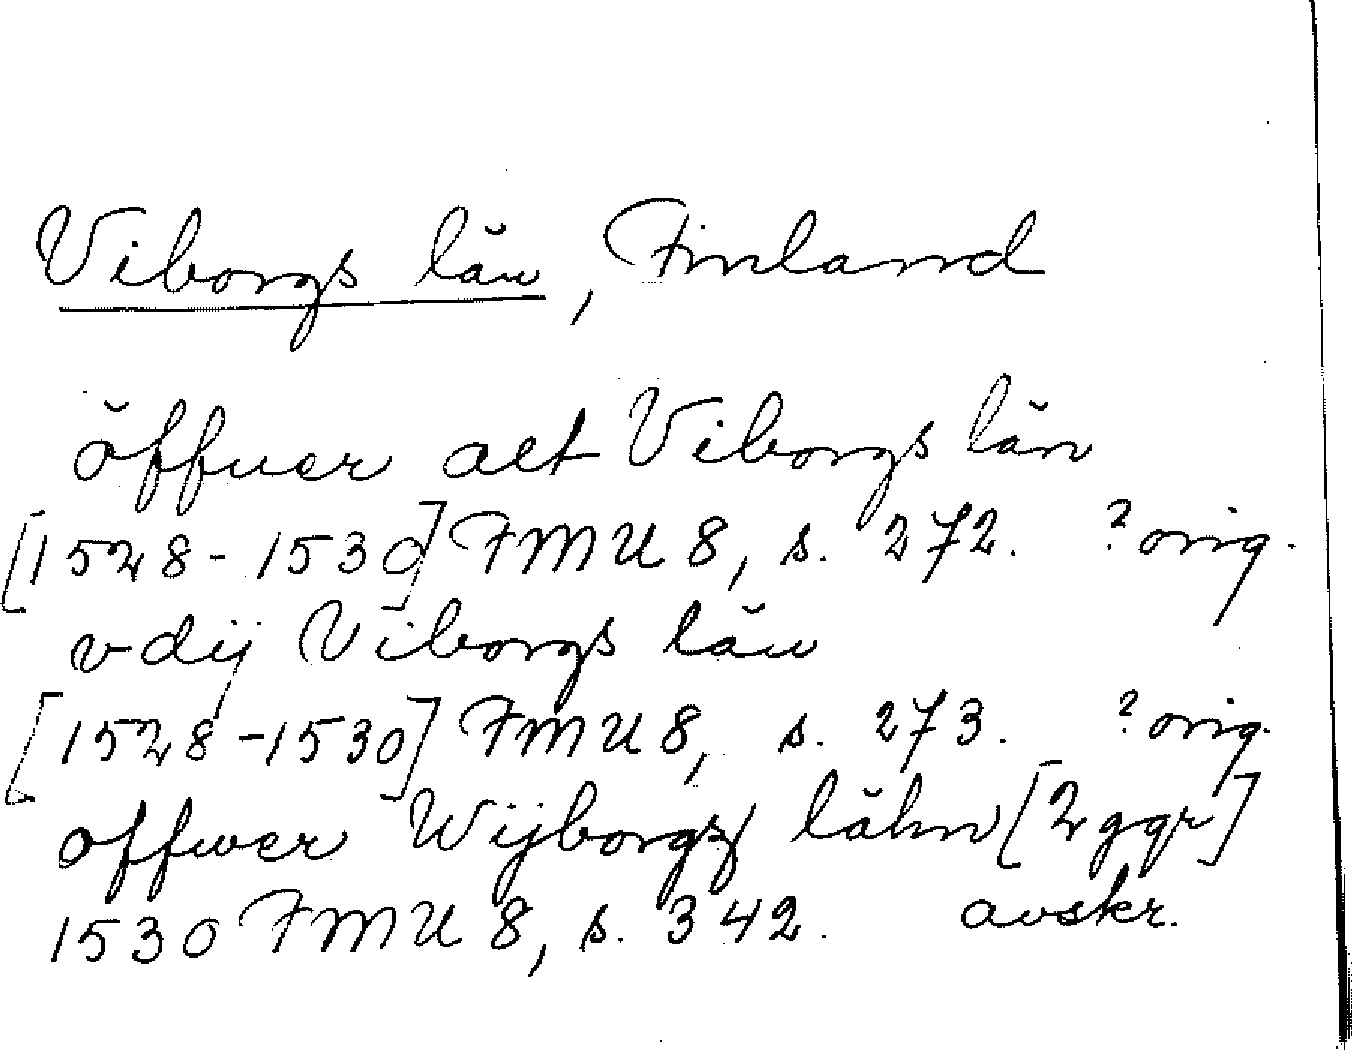 Viborgs län, Finland
öffuer alt Viborgs län
[1528-1530] FMU 8, s. 272. ? orig.
vdij Viborgs län
[1528-1530] FMU 8, s. 273. ? orig.
offwer Wijborgz lähn [2 ggr]
1530 FMU 8, s. 342. avskr.